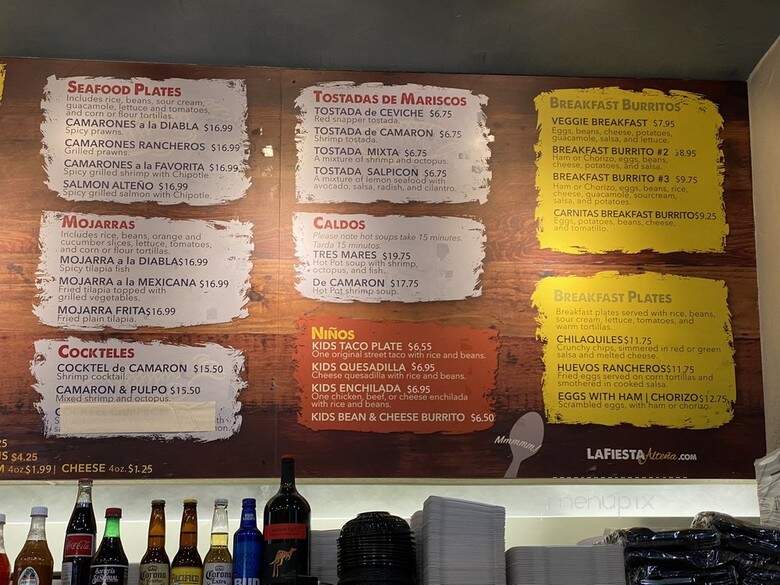 SEAFOOD PLATES
Includes rice, beans, sour cream,
guacamole, lettuce and tomatoes,
and corn or flour tortillas.
CAMARONES a la DIABLA $16.99
Spicy prawns.
CAMARONES RANCHEROS $16.99
Grilled prawns.
CAMARONES a la FAVORITA $16.99
Spicy grilled shrimp with Chipotle
SALMON ALTEÑO $16,99
Spicy grilled salmon with Chipotle.
MOJARRAS
Includes rice, beans, orange and
cucumber slices, lettuce, tomatoes,
and corn or flour tortillas.
MOJARRA a la DIABLA $16.99
Spicy tilapia fish
MOJARRA a la MEXICANA $16.99
Fried tilapia topped with
grilled vegetables.
MOJARRA FRITA $16.99
Fried plain tilapia.
COCKTELES
COCKTEL de CAMARON $15.50
Shrimp cocktail.
CAMARON & PULPO $15.50
Mixed shrimp and octopus.
$4.25
4oz $1.99 | CHEESE 4oz. $1.25
TOSTADAS DE MARISCOS
TOSTADA de CEVICHE $6.75
Red snapper tostada.
TOSTADA de CAMARON $6.75
Shrimp tostada.
TOSTADA MIXTA $6.75
A mixture of shrimp and octopus.
TOSTADA SALPICON $6.75
A mixture of lemon seafood with
avocado, salsa, radish, and cilantro.
CALDOS
Please note hot soups take 15 minutes.
Tarda 15 minutos.
TRES MARES $19.75
Hot Pot soup with shrimp,
octopus, and fish.
De CAMARON $17.75
Hot Pot shrimp soup.
NIÑOS
KIDS TACO PLATE $6,55
One original street taco with rice and beans.
KIDS QUESADILLA $6.95
Cheese quesadilla with rice and beans.
KIDS ENCHILADA $6.95
One chicken, beef, or cheese enchilada
with rice and beans.
KIDS BEAN & CHEESE BURRITO $6.50
BREAKFAST BURRITOS
VEGGIE BREAKFAST $7.95
Eggs, beans, cheese, potatoes,
guacamole, salsa, and lettuce.
BREAKFAST BURRITO #2 $8.95
Ham or Chorizo, eggs, beans,
cheese, potatoes, and salsa.
BREAKFAST BURRITO #3 $9.75
Ham or Chorizo, eggs, beans, rice,
cheese, guacamole, sourcream,
salsa, and potatoes.
CARNITAS BREAKFAST BURRITO $9.25
Eggs, potatoes, beans, cheese,
and tomatillo.
BREAKFAST PLATES
Breakfast plates served with rice, beans,
sour cream, lettuce, tomatoes, and
warm tortillas.
CHILAQUILES $11.75
Crunchy chips, simmered in red or green
salsa and melted cheese.
HUEVOS RANCHEROS $11.75
Fried eggs served on corn tortillas and
smothered in cooked salsa.
EGGS WITH HAM | CHORIZO $12.75
Scrambled eggs, with ham or chorizo.
Mmmmmm!
LAFIESTA Alteña .COM
menupix
Coca-Cola
SANGRIA
SEÑORIAL
Corona
PACIFICO
Corona
Extra
BUD